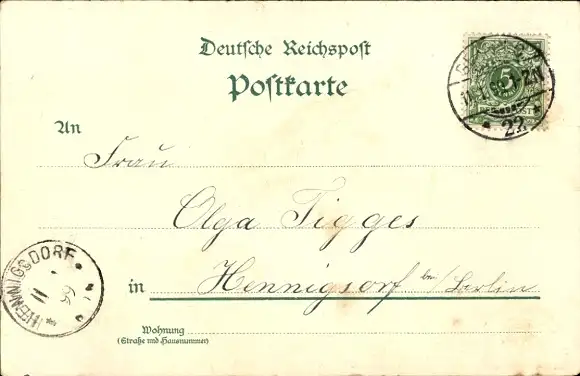 Deutsche Reichspost
Postkarte
5
An
Frau
Olga Tigges
in Hennigsdorf bei/Berlin
HENNIGSDORF
11
99
22
Wohnung
(Straße und Hausnummer)